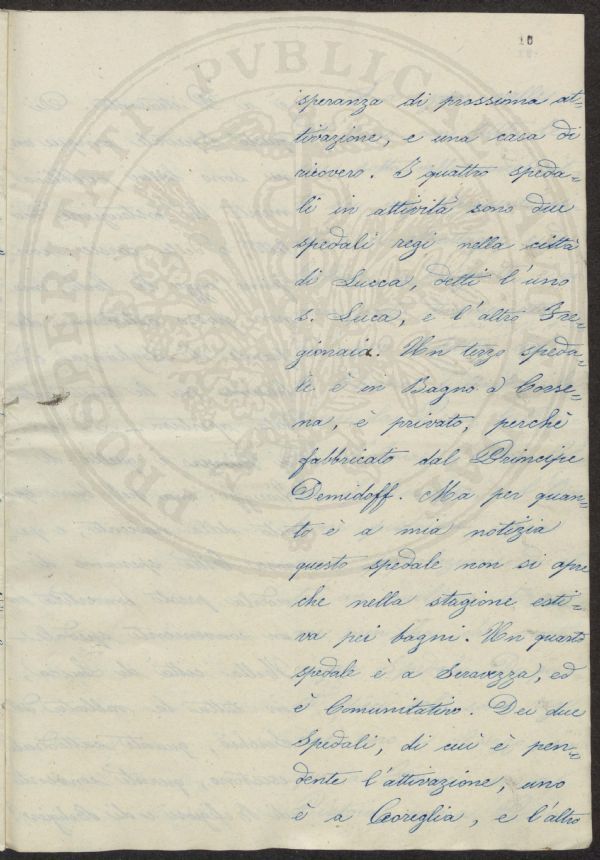 10
speranza di prossima at=
tivazione, e una casa di
ricovero. I quattro speda=
li in attività sono due
spedali regi nella città
di Lucca, detti l'uno
S. Luca, e l'altro Fre=
gionaia. Un terzo speda=
le è in Bagno a Corse=
na, è privato, perchè
fabbricato dal Principe
Demidoff. Ma per quan=
to è a mia notizia
questo spedale non si apre
che nella stagione esti=
va pei bagni. Un quarto
spedale è a Seravezza, ed
è Comunitativo. Dei due
Spedali, di cui è pen=
dente l'attivazione, uno
è a Coreglia, e l'altro
PROSPERITATI PVBLICAE